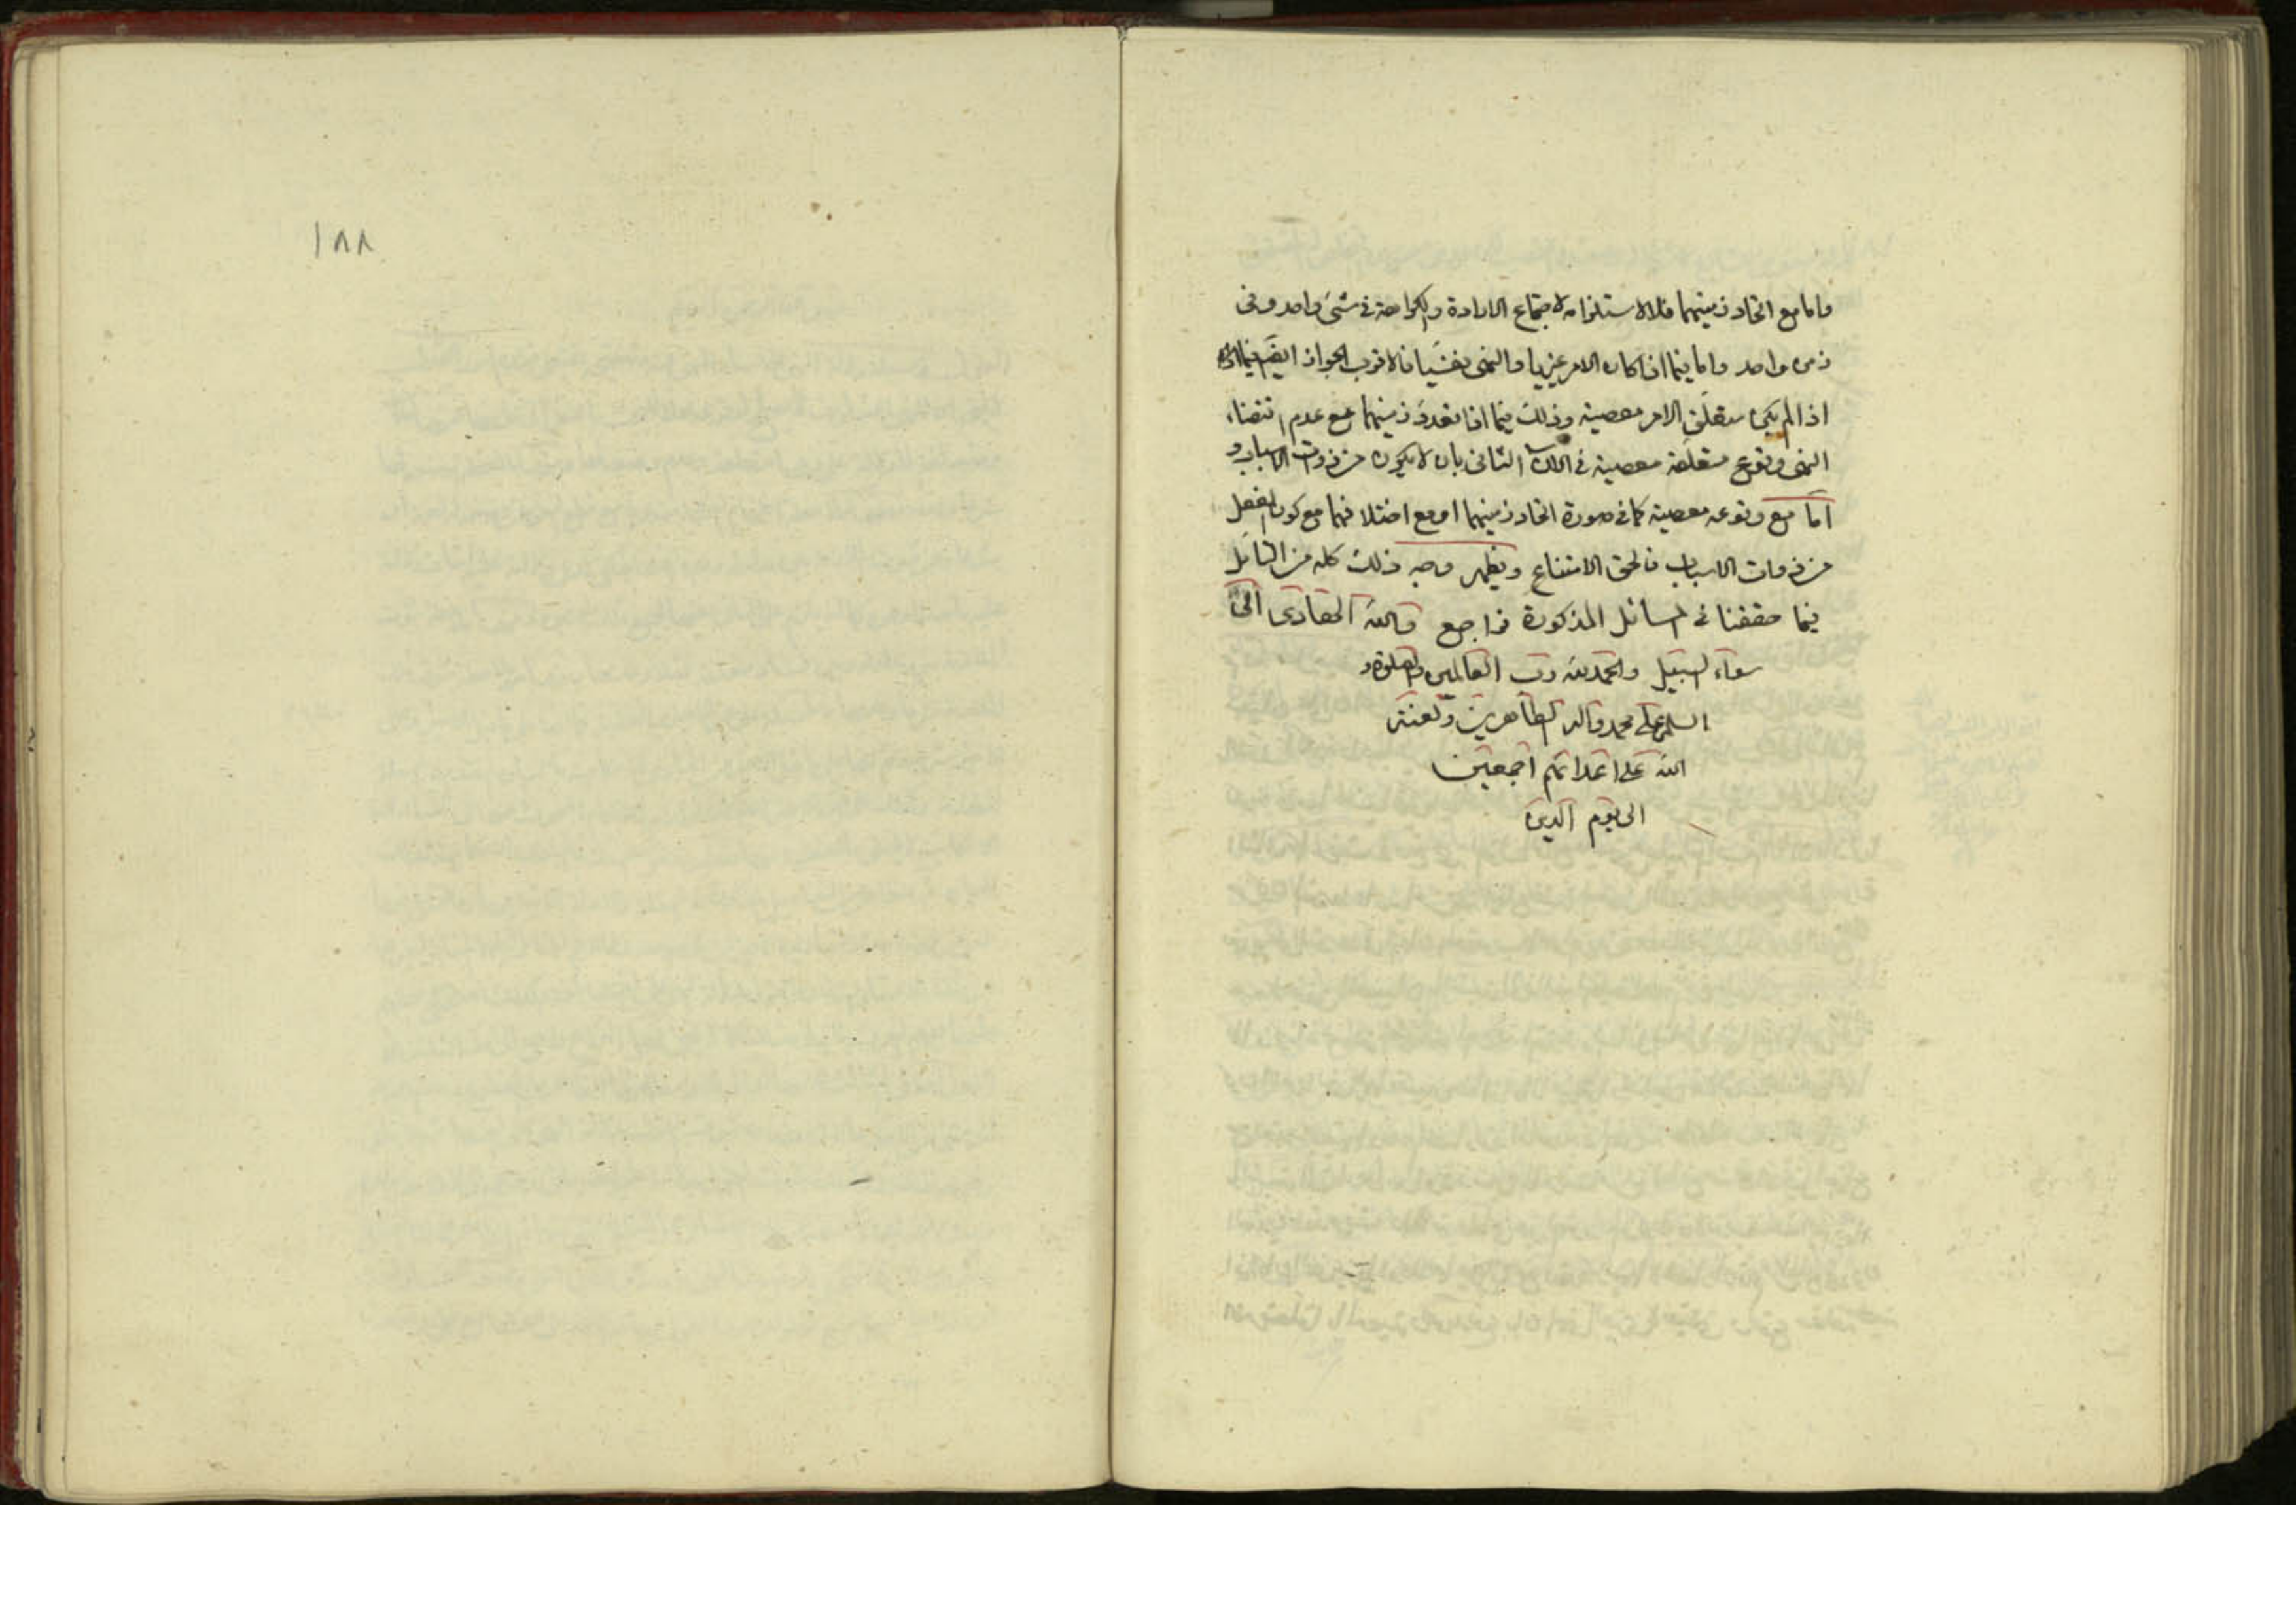 واما مع اتحاد زمنيهما فلا لاستلزامه لاجتماع الارادة والكراهة فى شئ واحد وفى
زمن واحد واما فيما اذا كان الامر غيريا والنهى نفسيا فالاقرب الجواز ايضا فيما
اذا لم يكن متعلق الامر معصية وذلك فيما اذا تعدد زمنيهما مع عدم اقتضاء
النهى وقوع متعلقه معصية فى الان الثانى بان لا يكون من ذوات الاسباب و
اما مع وقوعه معصية كما فى صورة اتحاد زمنيهما او مع اختلافهما مع كون الفعل
من ذوات الاسباب فالحق الامتناع ويظهر وجه ذلك كله من التامل
فيما حققنا فى المسائل المذكورة فراجع والله الهادى الى
سواء السبيل والحمد لله رب العالمين والصلوة و
السلم على محمد واله الطاهرين ولعنة
الله على اعدائهم اجمعين
الى يوم الدين
١٨٨